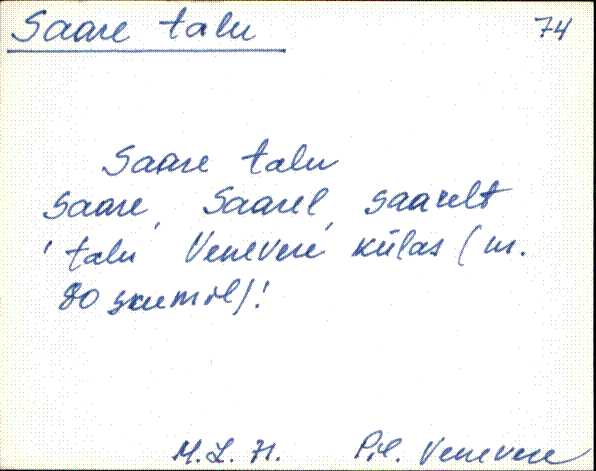 Saare talu 74
Saare talu
Saare, Saarel, saarelt
' talu Venevere külas (nr.
80 skeemil)!
M.L. 71. Pil. Venevere